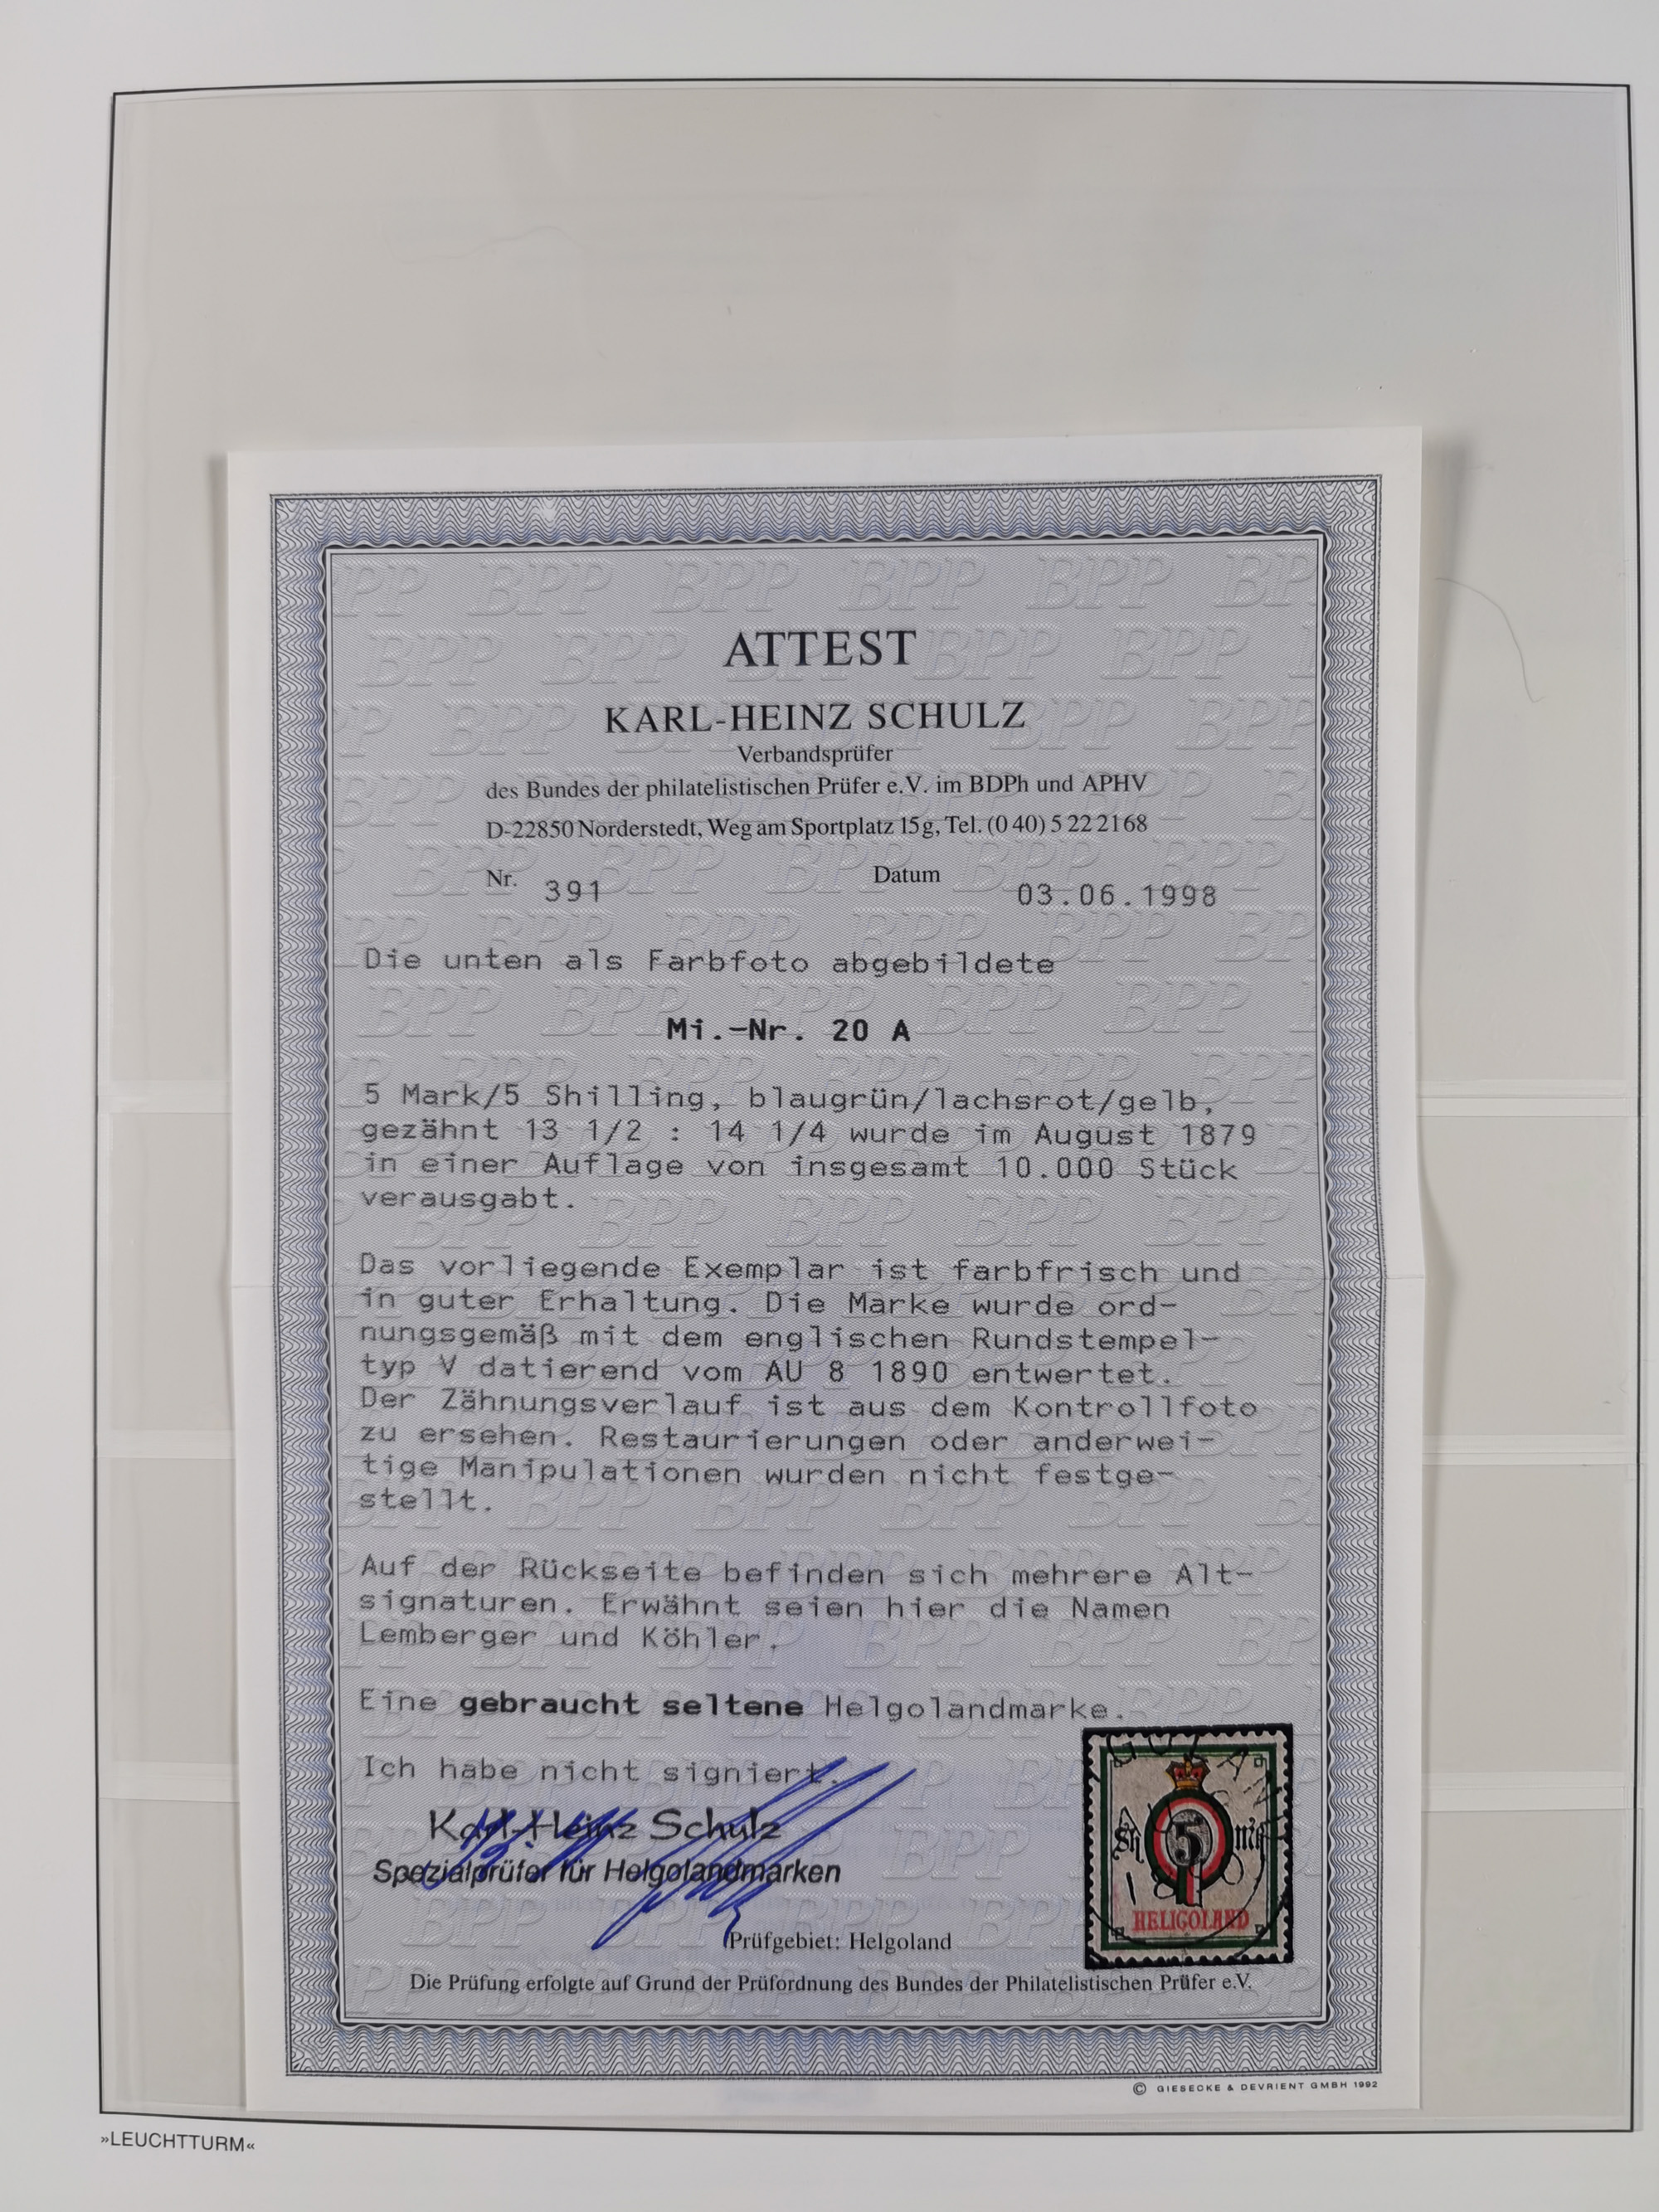 ATTEST
KARL-HEINZ SCHULZ
Verbandsprüfer
des Bundes der philatelistischen Prüfer e.V. im BDPh und APHV
D-22850 Norderstedt, Weg am Sportplatz 15g, Tel. (0 40) 5 22 21 68
Nr. 391 Datum 03.06.1998
Die unten als Farbfoto abgebildete
Mi.-Nr. 20 A
5 Mark/5 Shilling, blaugrün/lachsrot/gelb,
gezähnt 13 1/2 : 14 1/4 wurde im August 1879
in einer Auflage von insgesamt 10.000 Stück
verausgabt.
Das vorliegende Exemplar ist farbfrisch und
in guter Erhaltung. Die Marke wurde ord-
nungsgemäß mit dem englischen Rundstempel-
typ V datierend vom AU 8 1890 entwertet.
Der Zähnungsverlauf ist aus dem Kontrollfoto
zu ersehen. Restaurierungen oder anderwei-
tige Manipulationen wurden nicht festge-
stellt.
Auf der Rückseite befinden sich mehrere Alt-
signaturen. Erwähnt seien hier die Namen
Lemberger und Köhler.
Eine gebraucht seltene Helgolandmarke.
Ich habe nicht signiert.
Karl-Heinz Schulz
Spezialprüfer für Helgolandmarken
5
HELIGOLAND
Prüfgebiet: Helgoland
Die Prüfung erfolgte auf Grund der Prüfordnung des Bundes der Philatelistischen Prüfer e.V.
© GIESECKE & DEVRIENT GMBH 1992
»LEUCHTTURM«